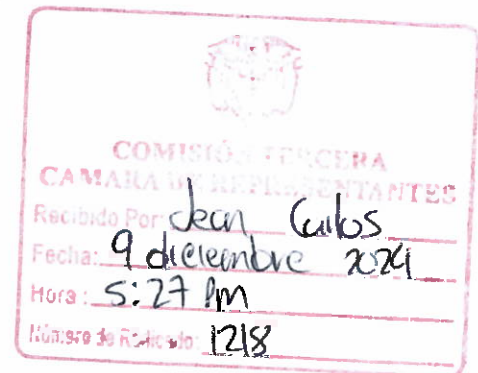 COMISIÓN TERCERA
CAMARA DE REPRESENTANTES
Recibido Por: Jean Carlos
Fecha: 9 diciembre 2024
Hora: 5:27 Pm
Número de Radicado: 1218